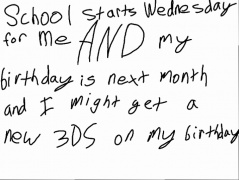 School starts Wednesday
for me AND my
birthday is next month
and I might get a
new 3DS on my birthday